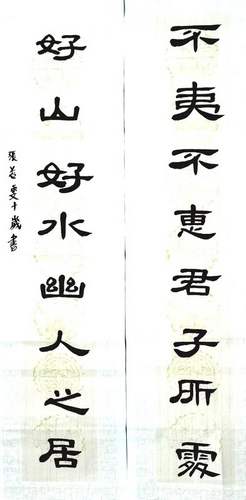 不夷不惠君子所處
好山好水幽人之居
張若雯十歲書